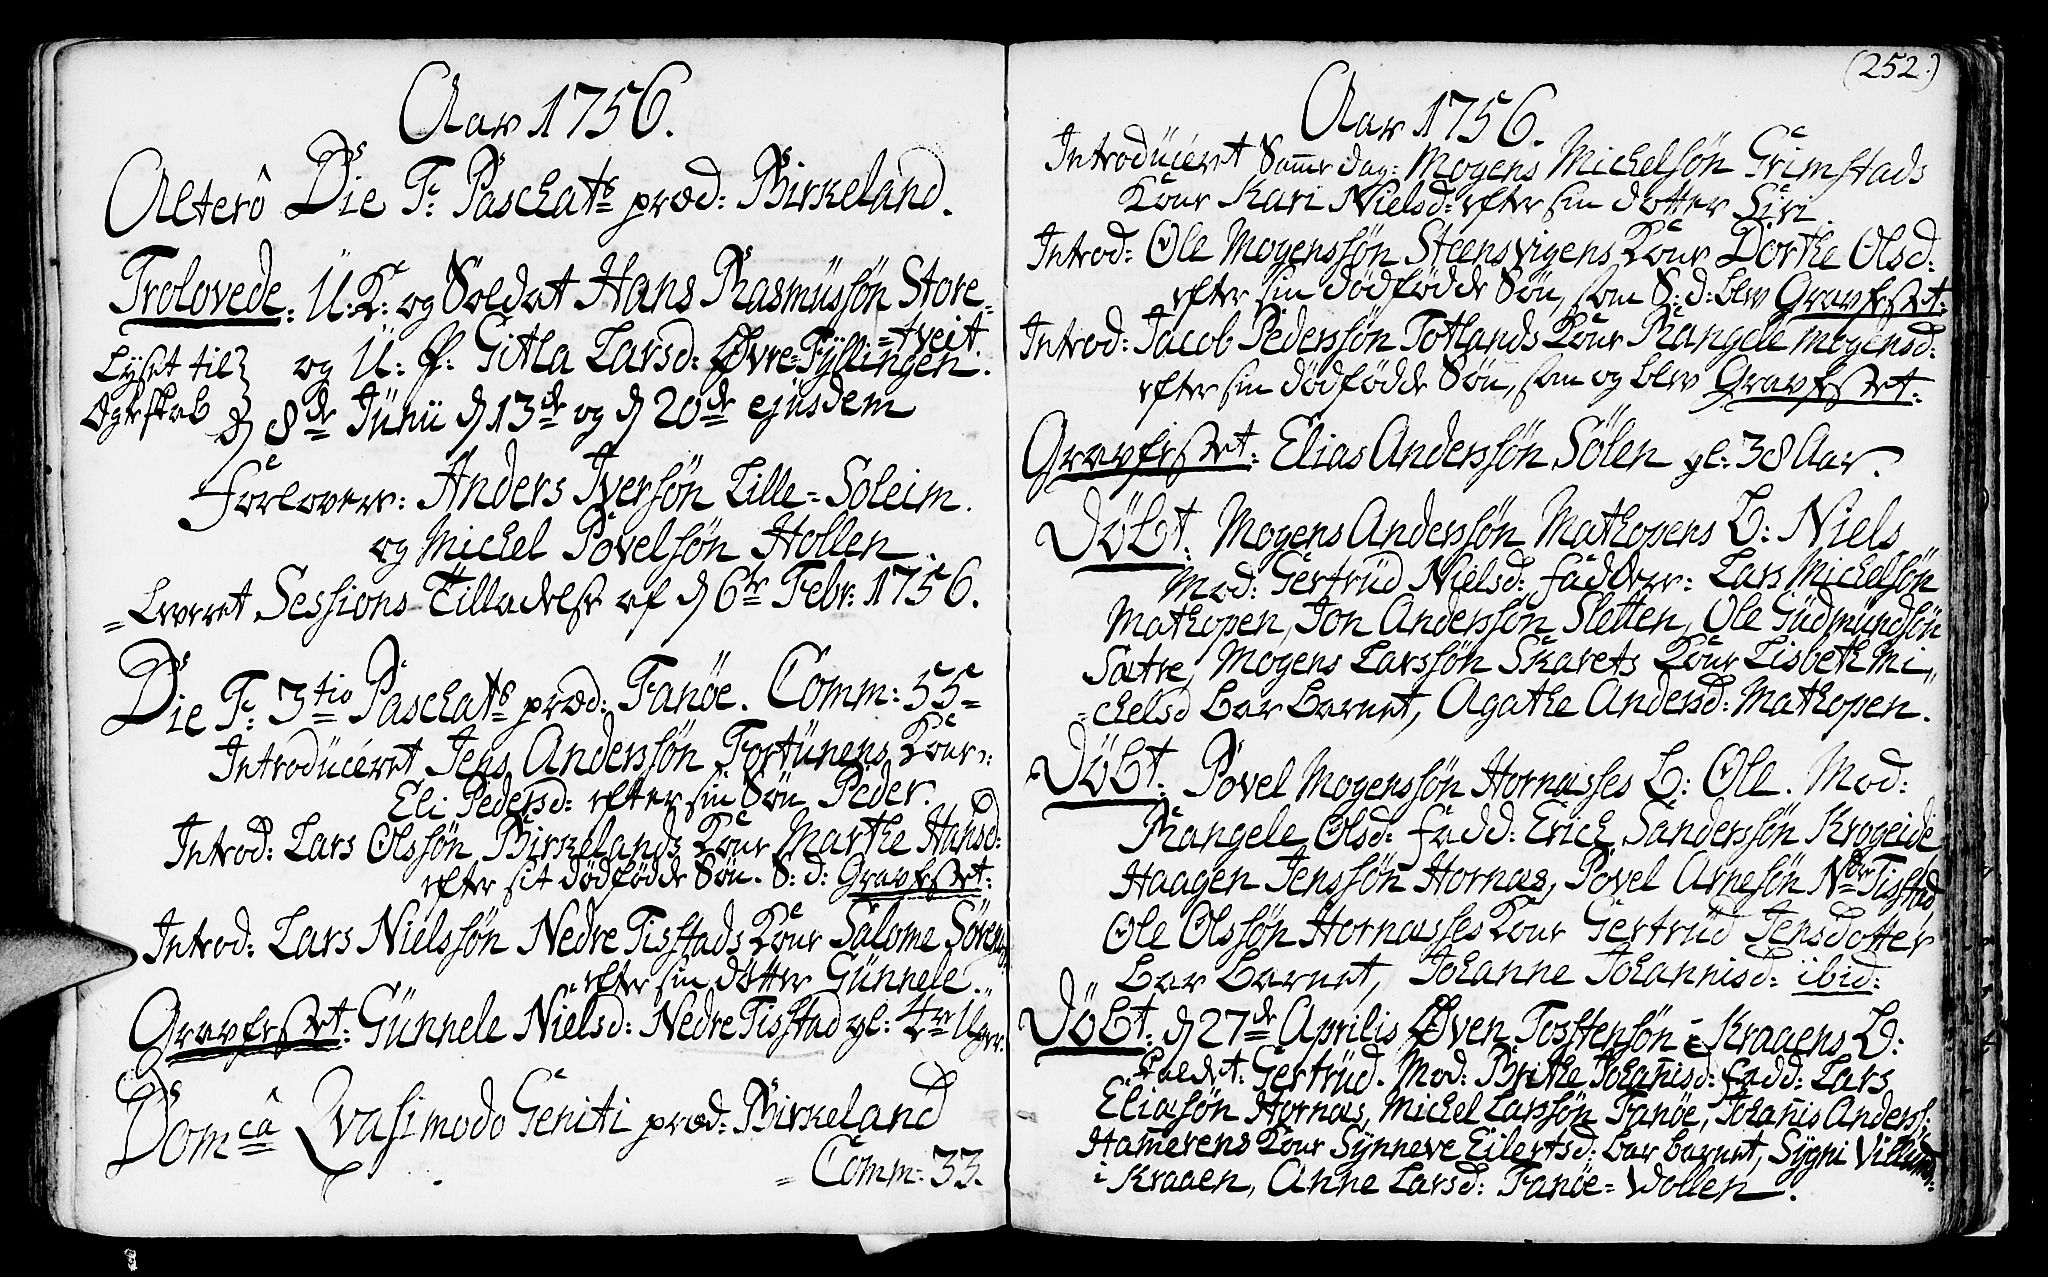 Aar 1756.
Alterô Die F: Paschats præd: Birkeland.
Trolovede: U: K: og Soldat Hans Rasmussøn Store=
=tveit.
og U: P: Gitla Larsd: Øvre=Fyllingen.
Lyst til
Egteskab
d 8de Junii d 13de og d 20de ejusdem
Forlovere: Anders Iversøn Lille=Soleim.
og Michel Povelsøn Hollen.
=Leveret Sessions Tilladelse af d 6te Febr: 1756.
Die F: 3tio Paschats præd: Fanöe. Comm: 55=
Introduceret Jens Anderssøn Fortunens Kone:
Eli Pedersd: efter sin Søn Peder.
Introd: Lars Olssøn Birkelands Kone Marthe Hansd:
efter sit dødfødde Søn. S: d: Gravfestet:
Introd: Lars Nielssøn Nedre Tisstads Kone Salome Sørensd:
efter sin dotter Gunnele.
Gravfestet: Gunnele Nielsd: Nedre Tisstad gl: 4re Uger.
Domcâ Qvasimodo Geniti præd: Birkeland
= Comm: 33.
(252.)
Aar 1756.
Introduceret Samme dag: Mogens Michelsøn Grimstads
Kone Kari Nielsd: efter sin dotter Siri.
Introd: Ole Mogenssøn Steensvigens Kone Dorthe Olsd:
efter sin dödfödde Søn, som S: d: blev Gravfestet:
Introd: Jacob Pederssøn Totlands Kone Rangele Mogensd:
efter sin dödfödde Søn, som og blev Gravfestet:
Gravfestet: Elias Anderssøn Sølen gl: 38 Aar.
Döbt: Mogens Anderssøn Mathopens b: Niels
Mod: Gertrud Nielsd: faddere: Lars Michelsøn
Mathopen, Jon Anderssøn Sletten, Ole Gudmundsøn
Sætre, Mogens Larssøn Skarets Kone Lisbeth Mi,,
=chelsd bar barnet, Agathe Andersd: Mathopen.
Döbt: Povel Mogenssøn Hornæsses b: Ole. Mod:
Rangele Olsd: fadd: Erich Sanderssøn Krogeide,
Haagen Jenssøn Hornæs, Povel Arnesøn Ndre Tisstad,
Ole Olssøn Hornæsses Kone Gertrud Jensdotter
bar barnet, Johanne Johannisd: ibid:
Döbt: d 27de Aprilis Øven Tosstensøn i Kraaens b:
kaldet: Gertrud. Mod: Brithe Johañisd: fadd: Lars
Eliasøn Hornæs, Michel Larssøn Fanöe, Johañis Anderss:
Ham̃erens Kone Synneve Eilertsd: bar barnet, Sygni
i Kraaen, Anne Larsd: Fanöe=Wollen.